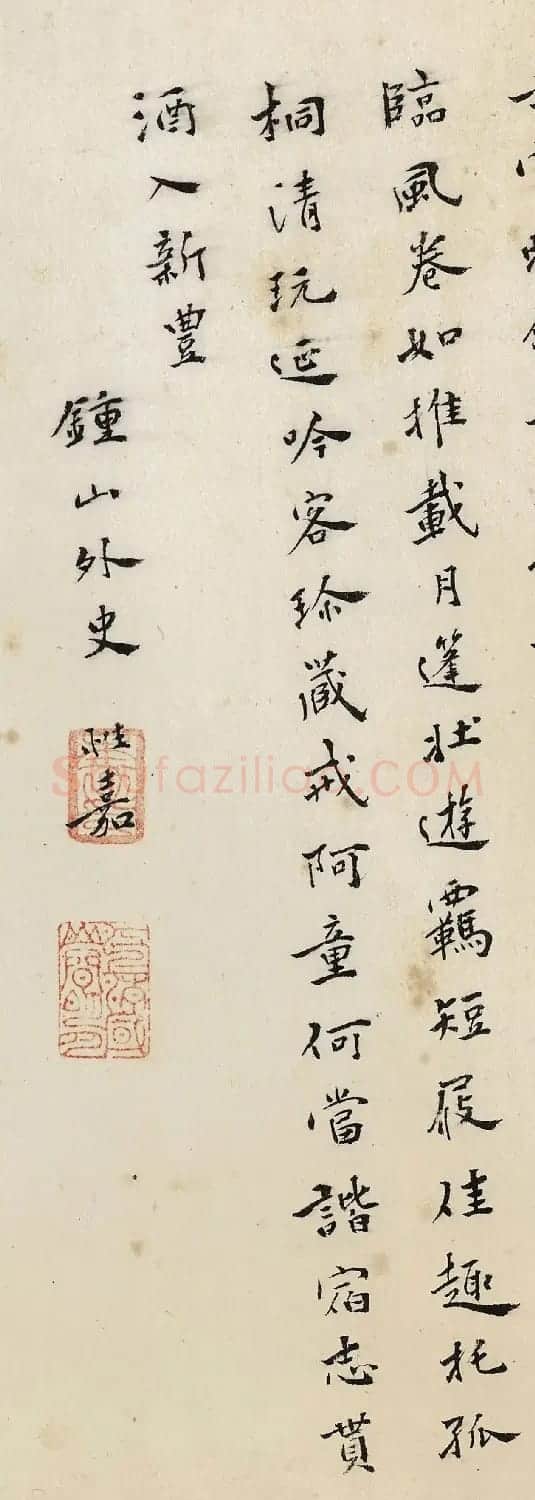 臨風卷如推載月篷壯遊羈短屐佳趣托孤
桐清玩延吟客珍藏戒阿童何當諧宿志貰
酒入新豐
鍾山外史 桂嘉